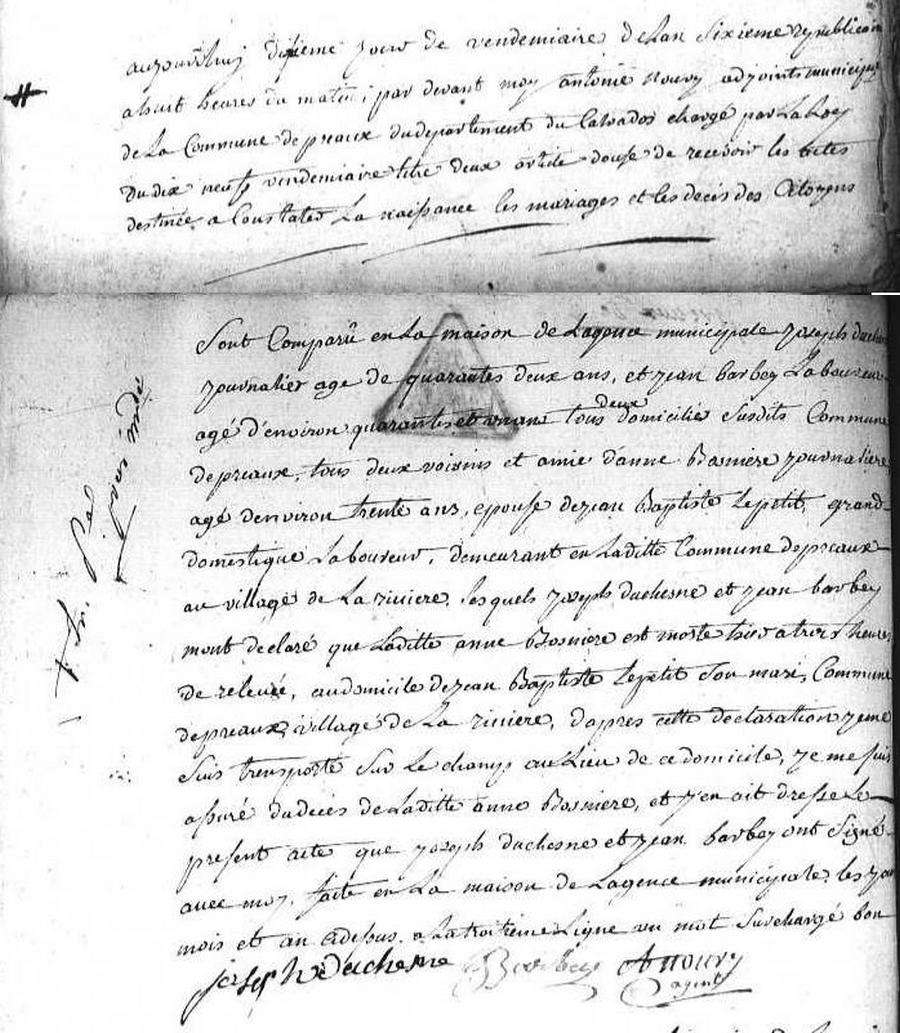 aujourdhuy dixieme jour de vendemiaire de Lan Sixieme republicain
a huit heures du matin, par devant moy antoine noury adjoint municipal
de La Commune de preaux du departement du Calvados chargé par La Loy
du dix neuf vendemiaire titre deux article douse de recevoir les actes
destinée a Constates La naissance les mariages et les decés des Citoyens
Sont Comparü en La maison de Lagence municipale Joseph duchesne
Journalier age de quarantes deux ans, et jean barbey Laboureur
agé d'environ quarantes et un ans tous deux domicilié Susdits Commune
de preaux, tous deux voisins et amie d'anne Bosniere journaliere
agé denviron trente ans, epouse de jean Baptiste Lepetit grand
domestique Laboureur, demeurant en Laditte Commune de preaux
au village de La riviere, les quels joseph duchesne et jean barbey
mont declaré que Laditte anne Bosniere est morte hier a trois heures
de relevée, au domicile de jean Baptiste Lepetit Son mari, Commune
de preaux, village de La riviere, dapres cette declaration jeme
Suis transporté Sur Le champ au Lieu de ce domicile, je me suis
assuré du decés de Laditte anne Bosniere, et j'en ait dressé Le
present acte que joseph duchesne et jean barbey ont Signé
avec moy, faite en La maison de Lagence municipale, les jour
mois et an adessus. a La troisieme Ligne un mot Surchargé bon
joseph Duchesne Barbey A noury
agent